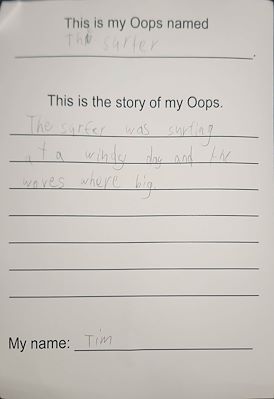 This is my Oops named
The surfer
This is the story of my Oops.
The surfer was surfing
at a windy day and the
waves where big.
My name: Tim